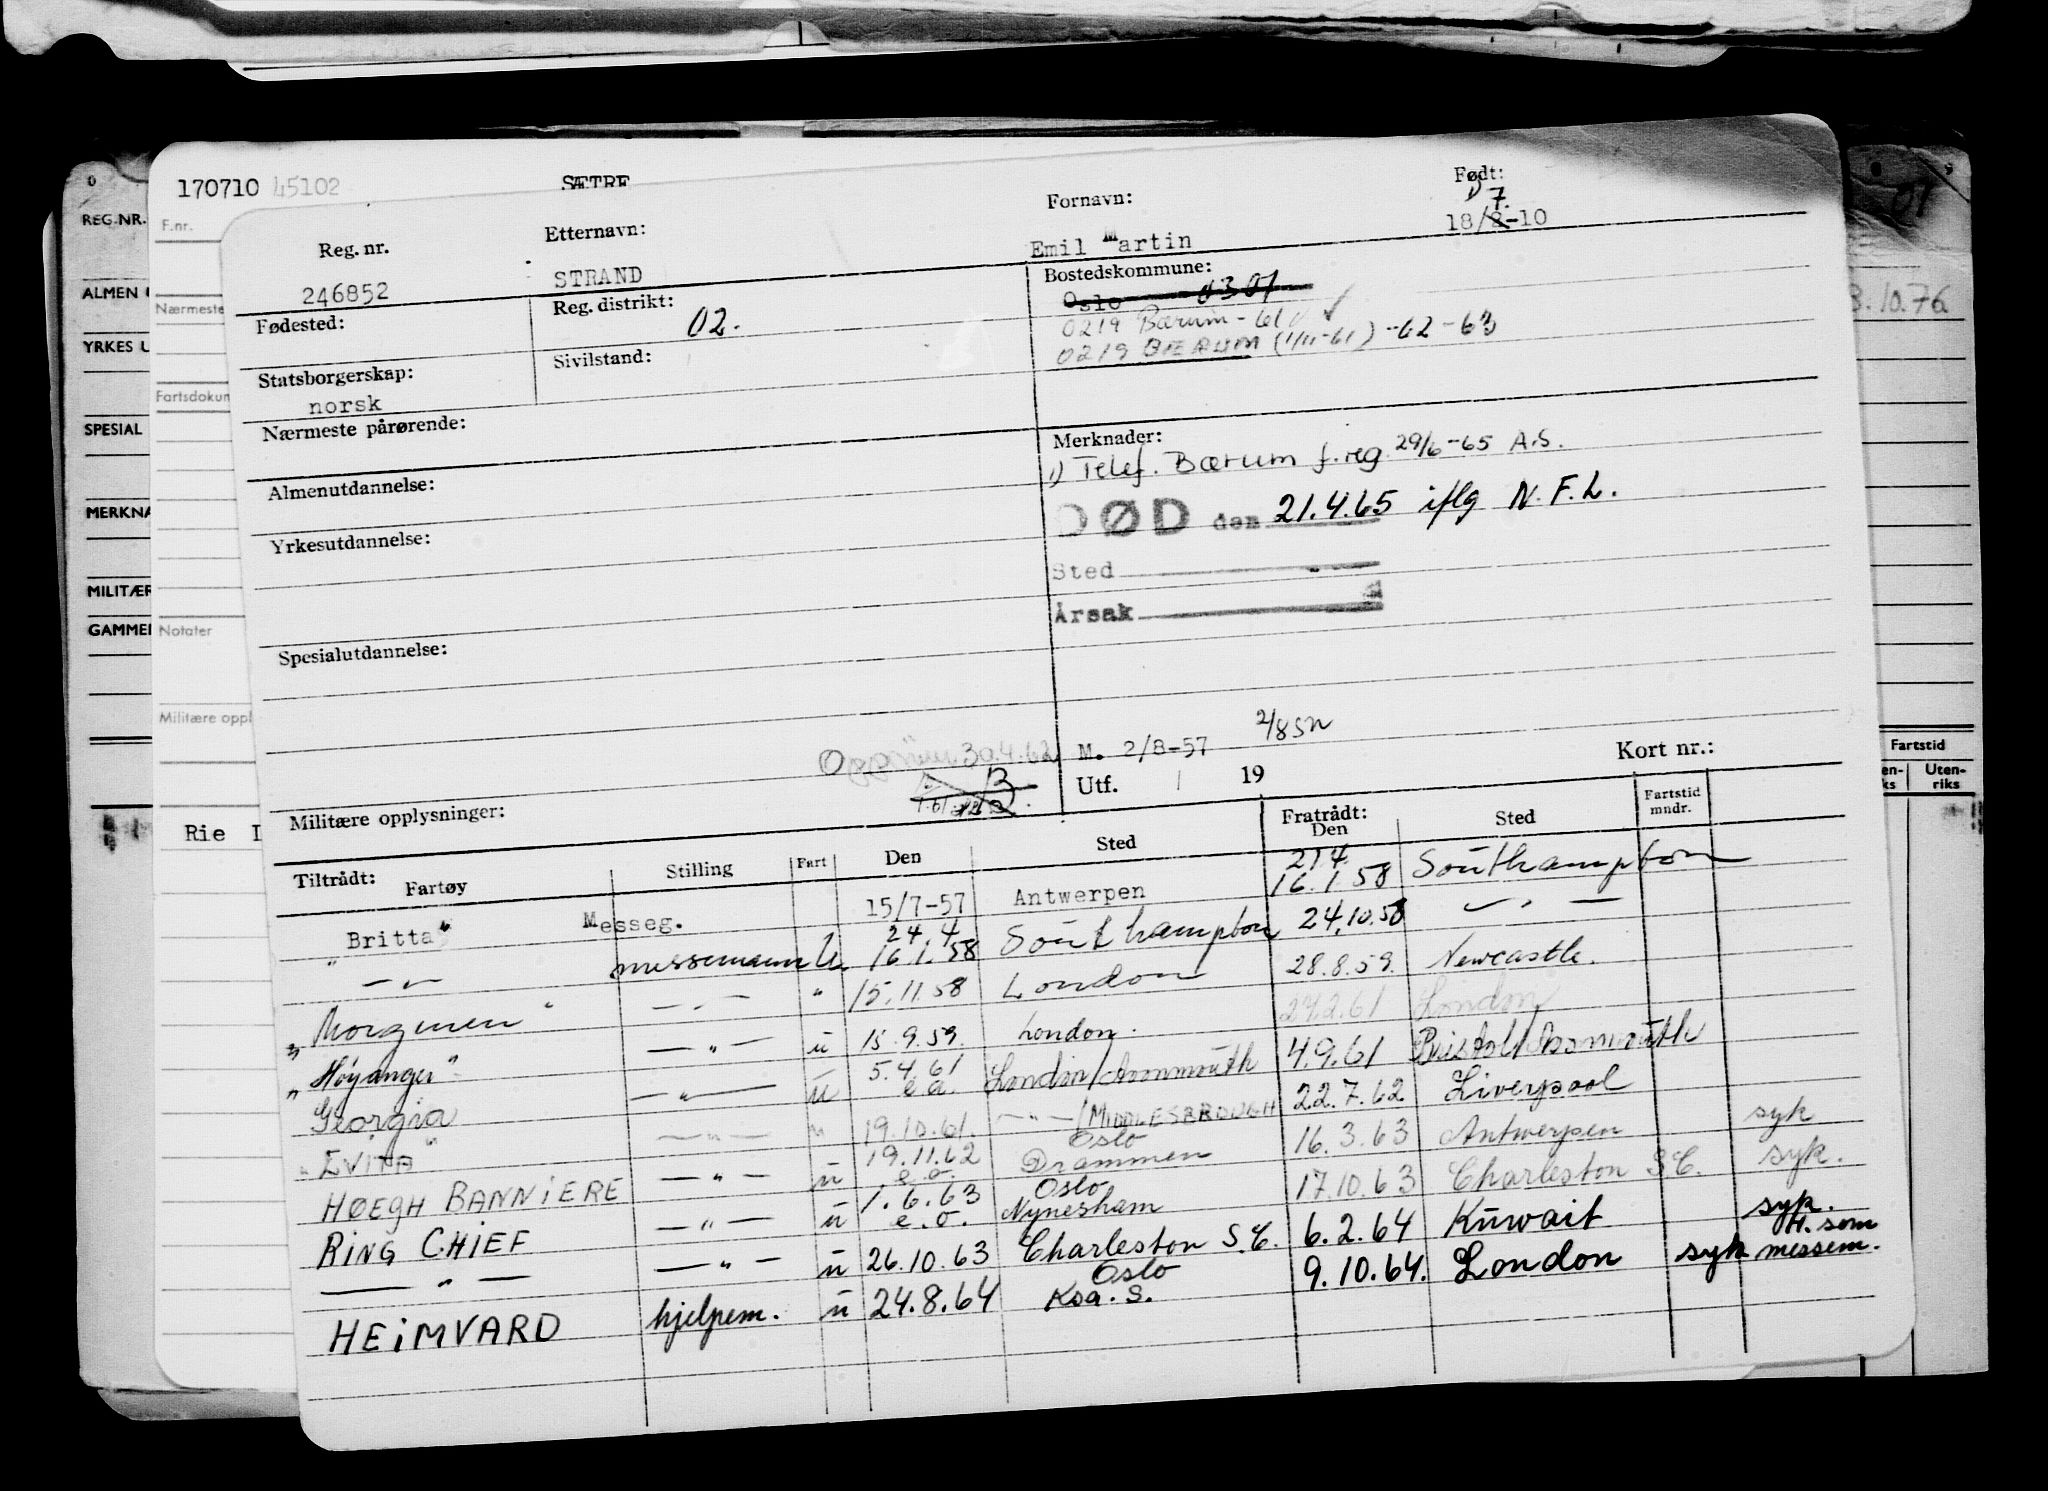 170710 45102 SÆTRE
F.nr.
Nærmeste
Fartsdokum
Notater
Militære oppl
Rie
REG.NR.
ALMEN
YRKES U
SPESIAL
MERKNA
MILITÆR
GAMMEL
01
3.10.76
Fartstid
Uten-
riks
Reg. nr.
246852
Etternavn:
STRAND
Fornavn:
Emil Martin
Født:
1) 7.
18/8-10
Fødested:
Reg. distrikt:
02.
Bostedskommune:
Oslo 0301
0219 Bærum - 61 ✓
0219 BÆRUM (1/11-61) -62 -63
Statsborgerskap:
norsk
Sivilstand:
Nærmeste pårørende:
Merknader:
1) Telef. Bærum f.reg. 29/6-65 A.S.
DØD den 21.4.65 iflg N.F.L.
Sted
Årsak
Almenutdannelse:
Yrkesutdannelse:
Spesialutdannelse:
30.4.62
M. 2/8-57 2/8 57
Utf. / 19
Kort nr.:
Militære opplysninger:
Tiltrådt: Fartøy Stilling Fart Den Sted Fratrådt: Den Sted Fartstid mndr.
"Britta" Messeg. 15/7-57 Antwerpen 21.4 16.1.58 Southampton
— " — messemann U. 24.4 16.1.58 Southampton 24.10.58 — " —
"Morgunen" — " — " 15.11.58 London 28.8.59. Newcastle.
"Høyanger" — " — u 15.9.59. London. 24.2.61 London
Georgia — " — u 5.4.61 e.a. London/Avonmouth 4.9.61 Bristol/Avonmouth
"EVITA" — " — " 19.10.61. — " — /MIDDLESBROUGH 22.7.62 Liverpool
HØEGH BANNIERE — " — u 19.11.62 e.o. Oslo Drammen 16.3.63 Antwerpen syk
RING CHIEF — " — u 1.6.63 e.o. Oslo Nynesham 17.10.63 Charleston S.C. syk.
— " — — " — u 26.10.63 Charleston S.C. 6.2.64 Kuwait syk.
HEIMVARD hjelpem. u 24.8.64 Oslo Ksa. S. 9.10.64. London syk H. som messem.